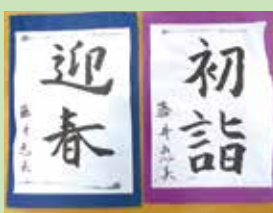 迎春
初詣